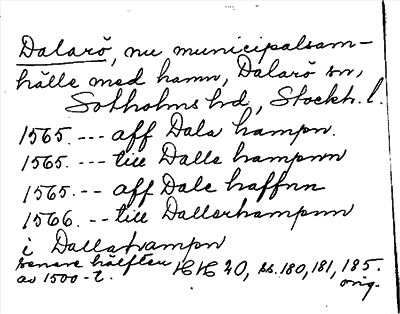 Dalarö, nu municipalsam-
hälle med hamn, Dalarö sn,
Sotholms hd, Stockh. l.
1565. --- aff Dala hampn.
1565. --- till Dalle hampnn
1565. -- aff Dale haffnn
1566. -- till Dallerhampnn
i Dallahampn
senare hälften HH 20, ss. 180, 181, 185.
av 1500-t. orig.